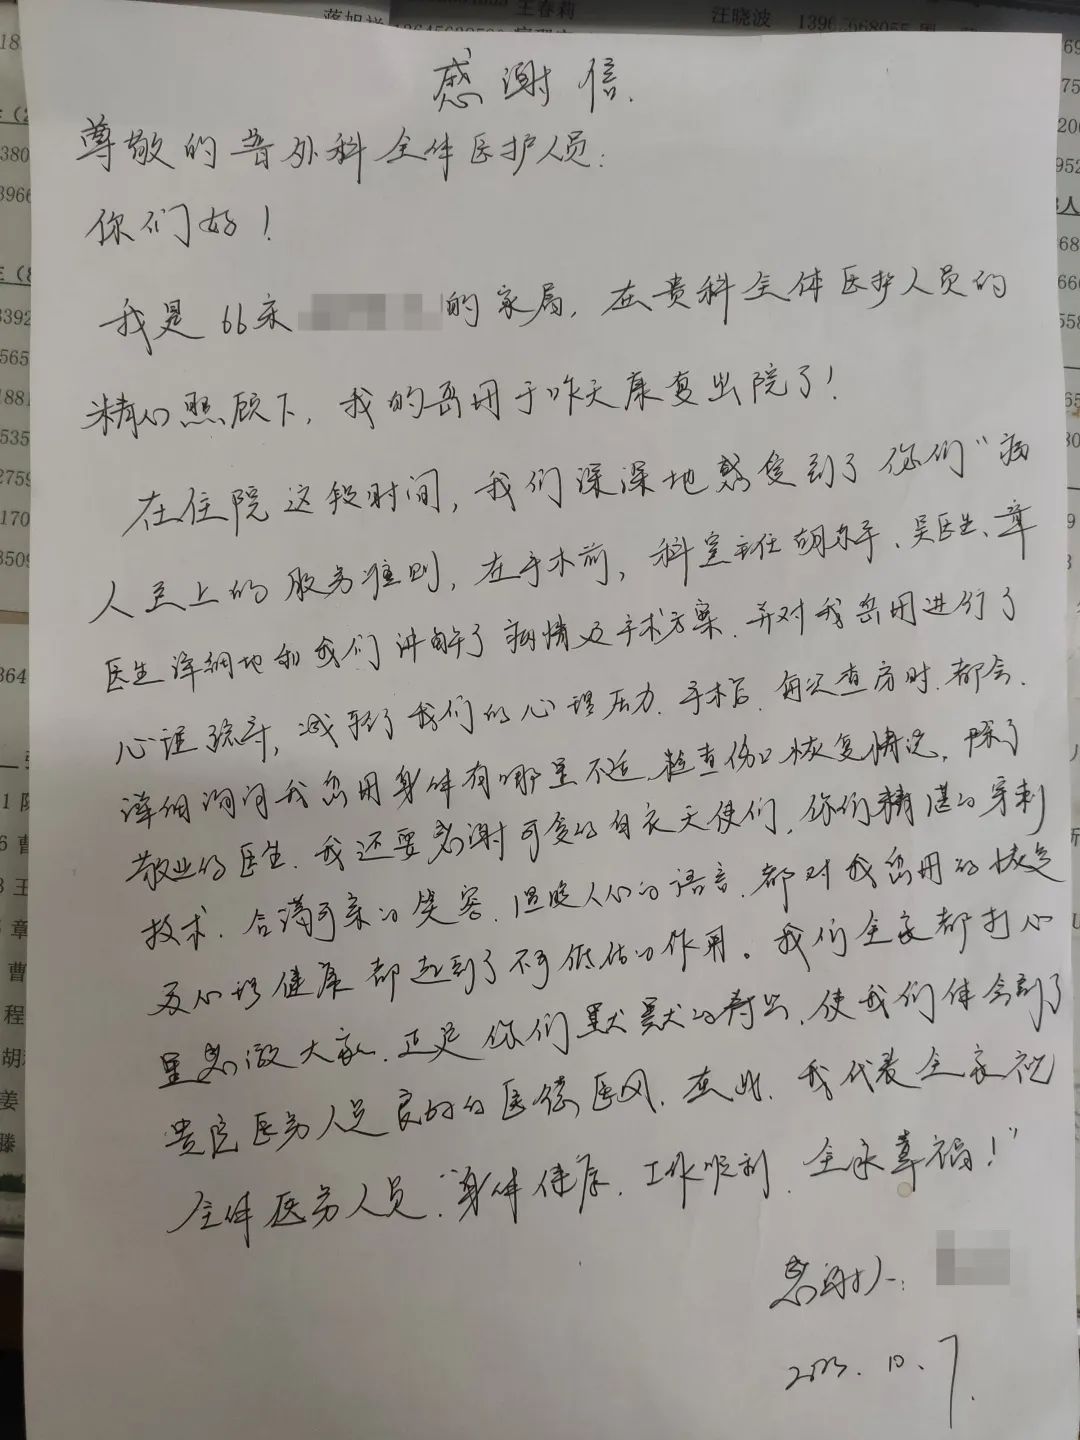 王春莉
汪晓波
感谢信.
尊敬的普外科全体医护人员:
你们好!
我是66床 的家属,在贵科全体医护人员的
精心照顾下,我的岳母于昨天康复出院了!
在住院这段时间,我们深深地感受到了你们“病
人至上的服务准则,在手术前,科室主任胡 、吴医生、章
医生详细地和我们讲解了病情及手术方案.并对我岳母进行了
心理疏导,减轻了我们的心理压力.手术后.每次查房时.都会.
详细询问我岳母身体有哪里不适.检查伤口恢复情况.除了
敬业的医生.我还要感谢可爱的白衣天使们.你们精湛的穿刺
技术.合蔼可亲的笑容.温暖人心的语言.都对我岳母的恢复
及心理健康都起到了不可低估的作用。我们全家都打心
里感激大家.正是你们默默的付出.使我们体会到了
贵院医务人员良好的医德医风.在此.我代表全家祝
全体医务人员:“身体健康.工作顺利.全家幸福!”
感谢人:
2023.10.7.